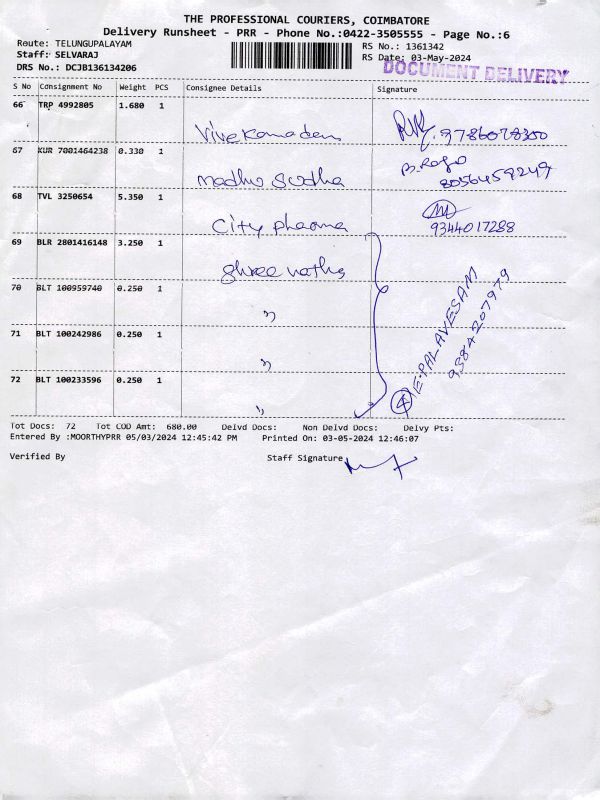 THE PROFESSIONAL COURIERS, COIMBATORE
Delivery Runsheet - PRR - Phone No.:0422-3505555 - Page No.:6
Route: TELUNGUPALAYAM
RS No.: 1361342
Staff: SELVARAJ
RS Date: 03-May-2024
DRS No.: DCJB136134206
DOCUMENT DELIVERY
S No Consignment No Weight PCS Consignee Details Signature
66 TRP 4992805 1.680 1
Vivekanandan 9786078300
67 KUR 7001464238 0.330 1
madhu sudha B.Roja
8056459249
68 TVL 3250654 5.350 1
City pharma 9344017288
69 BLR 2801416148 3.250 1
Shree naths
70 BLT 100959740 0.250 1
"
71 BLT 100242986 0.250 1
"
72 BLT 100233596 0.250 1
"
4 E.PALAVESAM
9384207979
Tot Docs: 72 Tot COD Amt: 680.00 Delvd Docs: Non Delvd Docs: Delvy Pts:
Entered By :MOORTHYPRR 05/03/2024 12:45:42 PM Printed On: 03-05-2024 12:46:07
Verified By Staff Signature